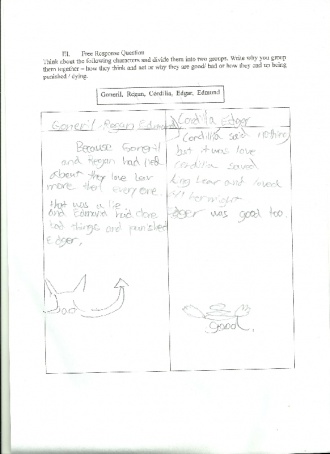 P.I. Free Response Question
Think about the following characters and divide them into two groups. Write why you group
them together - how they think and act or why they are good/ bad or how they end up being
punished / dying.
Goneril, Regan, Cordilia, Edgar, Edmund
Goneril Regan Edmund
Because Goneril
and Regan had lied
about they love Lear
more then everyone
that was a lie.
and Edmund had done
bad things and punished
Edger.
Bad
Cordilla Edger
Cordilla said nothing
but it was love
Cordilla saved
King Lear and
Edger was good too.
Good.